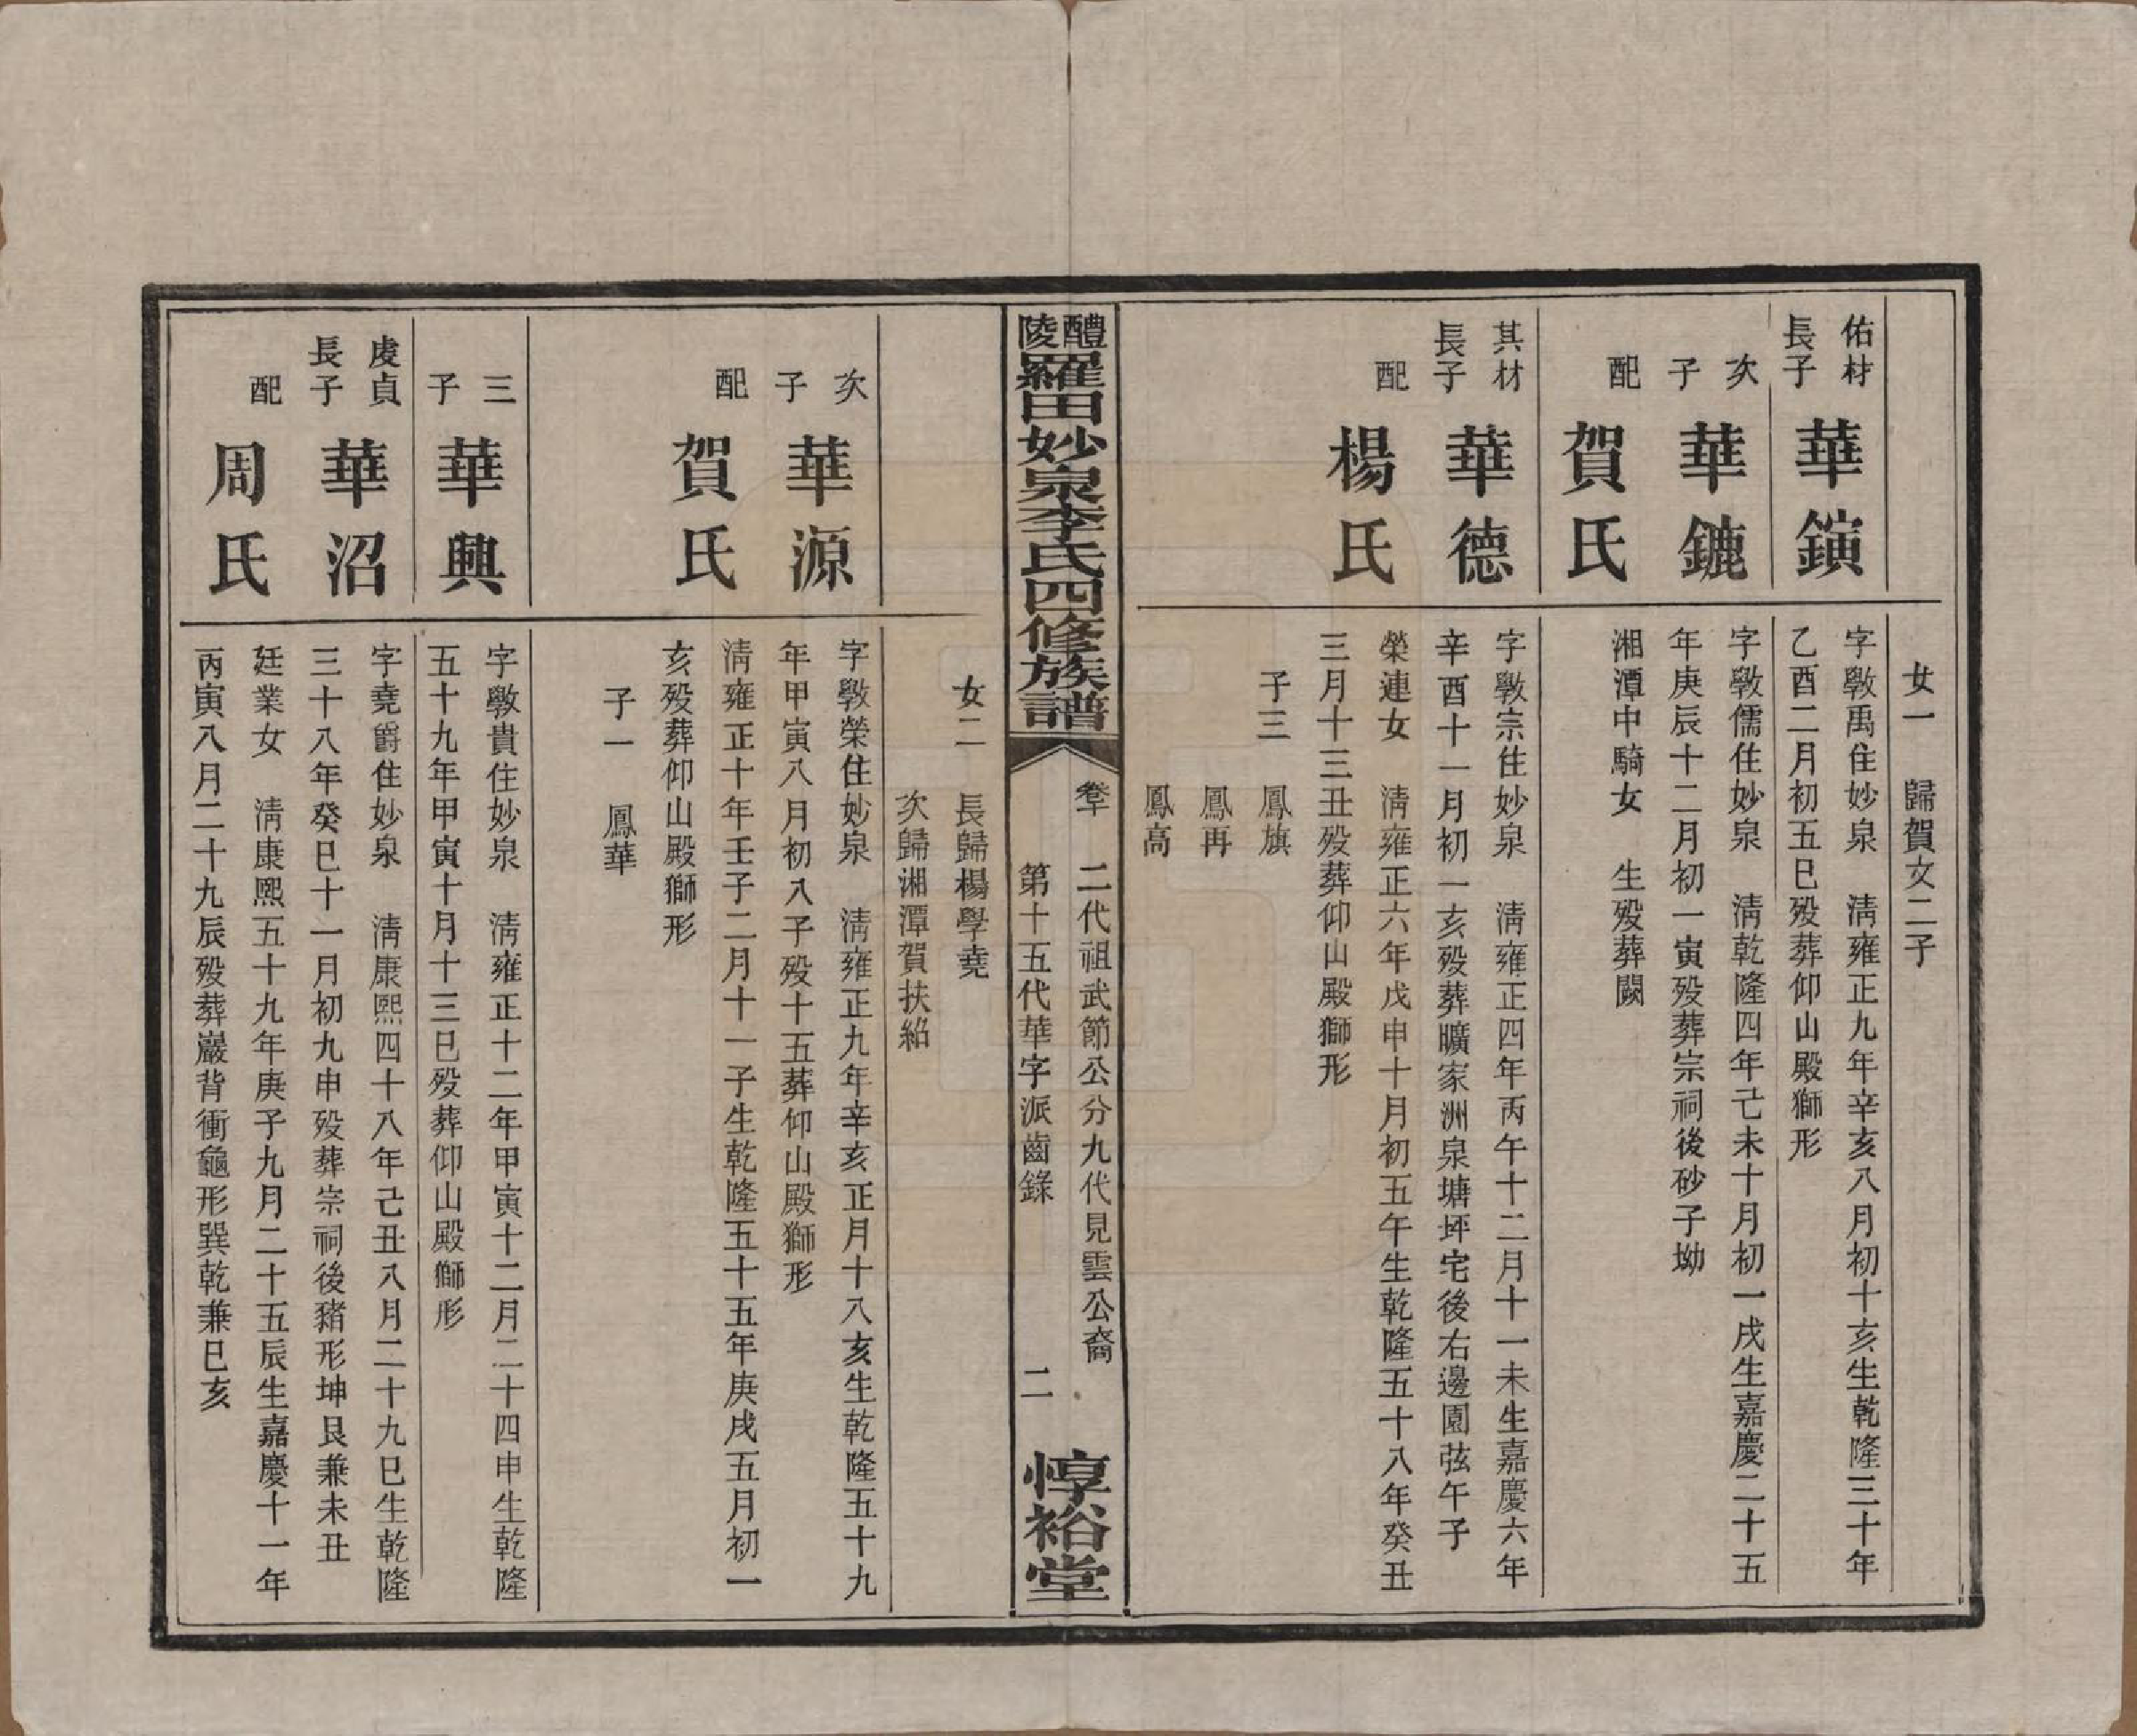 女一　歸賀文二子
佑材
長子
華鐄
字斆禹住妙泉　淸雍正九年辛亥八月初十亥生乾隆三十年
乙酉二月初五巳殁葬仰山殿獅形
次子
華鑣
字斆儒住妙泉　淸乾隆四年己未十月初一戌生嘉慶二十五
年庚辰十二月初一寅殁葬宗祠後砂子坳
配
賀氏
湘潭中騎女　生殁葬闕
其材
長子
華德
字斆宗住妙泉　淸雍正四年丙午十二月十一未生嘉慶六年
辛酉十一月初一亥殁葬曠家洲泉塘坪宅後右邊園弦午子
配
楊氏
榮連女　淸雍正六年戊申十月初五午生乾隆五十八年癸丑
三月十三丑殁葬仰山殿獅形
子三　鳳旗
鳳再
鳳高
醴陵羅田妙泉李氏四修族譜
卷十　二代祖武節公分九代見雲公裔
第十五代華字派齒錄
二
惇裕堂
女二　長歸楊學堯
次歸湘潭賀扶紹
次子
華源
字斆榮住妙泉　淸雍正九年辛亥正月十八亥生乾隆五十九
年甲寅八月初八子殁十五葬仰山殿獅形
配
賀氏
淸雍正十年壬子二月十一子生乾隆五十五年庚戌五月初一
亥殁葬仰山殿獅形
子一　鳳華
三子
華興
字斆貴住妙泉　淸雍正十二年甲寅十二月二十四申生乾隆
五十九年甲寅十月十三巳殁葬仰山殿獅形
虔貞
長子
華沼
字堯爵住妙泉　淸康熙四十八年己丑八月二十九巳生乾隆
三十八年癸巳十一月初九申殁葬宗祠後豬形坤艮兼未丑
配
周氏
廷業女　淸康熙五十九年庚子九月二十五辰生嘉慶十一年
丙寅八月二十九辰殁葬巖背衝龜形巽乾兼巳亥